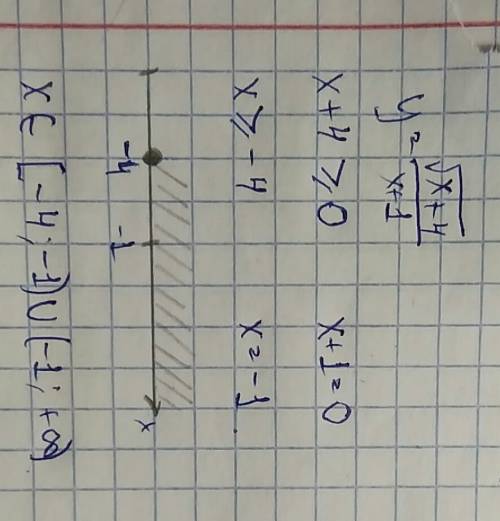 y = √x+4 / x+1
x+4 ⩾ 0 x+1=0
x ⩾ -4 x = -1
-4 -1 x
x ∈ [-4; -1) ∪ (-1; +∞)